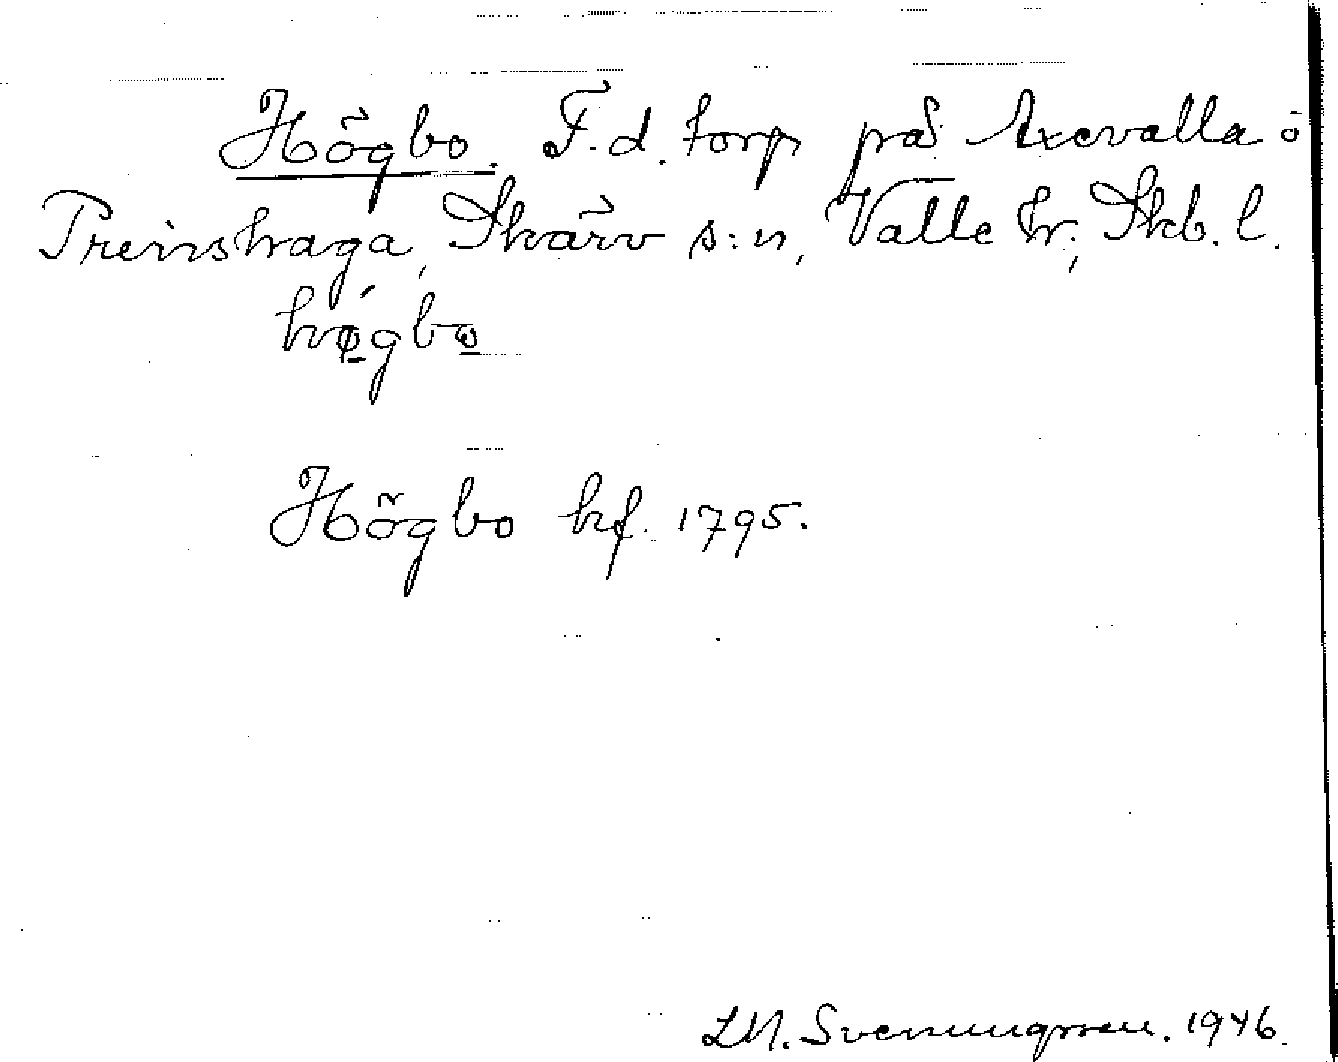 Högbo. F.d. torp på Axevalla ö
Prensthaga, Skärv s:n, Valle hr, Skb. l.
hǿ̨gbo̲
Högbo hf. 1795.
L.M. Svenungsson. 1946.